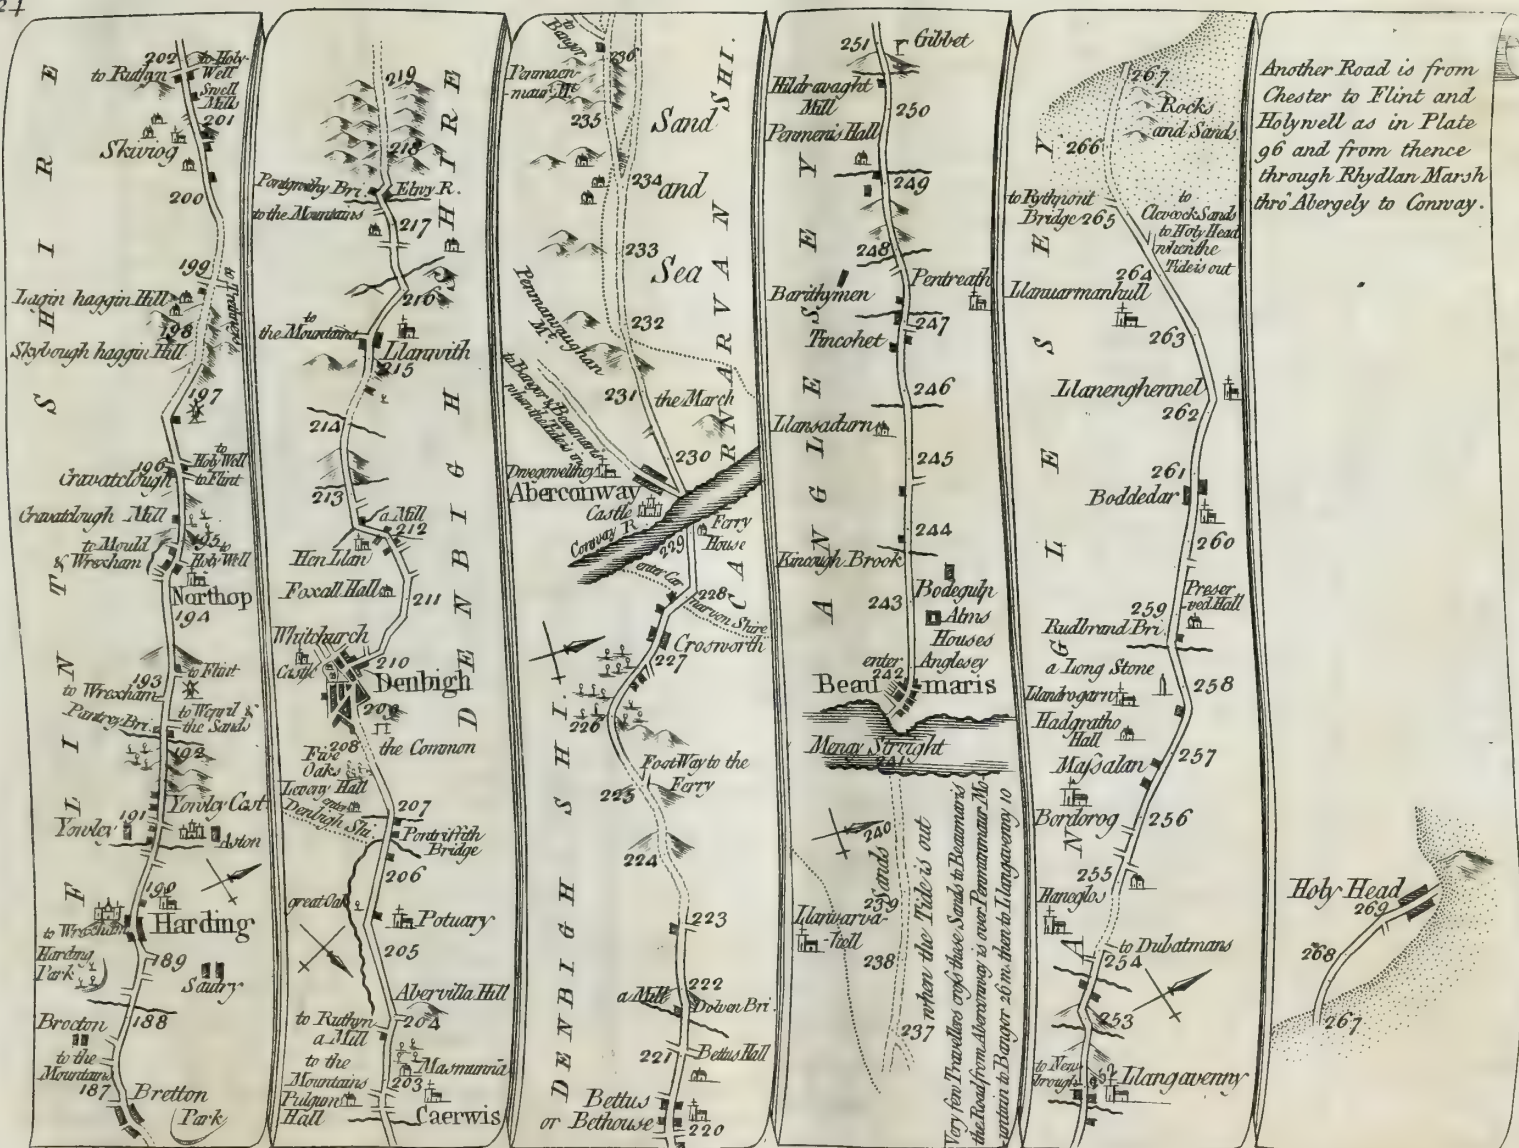 24
FLINTSHIRE
202
to Ruthyn
to Holy
Well
Smell
Mills
201
Skiviog
200
199
Lagin haggin Hill
198
Skybough haggin Hill
197
196
to
Holy Well
to Flint
Cravatclough
Cravatclough Mill
to Mould
& Wrexham
195
to
Holy Well
Northop
194
to Flint
193
to Wrexham
Pantrey Bri.
to Wepril &
the Sands
192
Yowley Cast
191
Yowley
Aston
190
Harding
to Wrexham
Harding
Park
189
Saütry
188
Brocton
to the
Mountains
187
Bretton
Park
DENBIGHSHIRE
219
218
Pontgwithy Bri.
Elwy R.
to the Mountains
217
216
to
the Mountains
Llanwith
215
214
213
a Mill
212
Hen Llan
Foxall Hall
211
Whitchurch
Castle
210
Denbigh
209
208
the Common
Five
Oaks
Leveny Hall
enter
Denbigh Shi.
207
Pontriffith
Bridge
206
great Oak
Potuary
205
Abervilla Hill
to Ruthyn
204
a Mill
to the
Mountains
Masmunna
203
Pulgum
Hall
Caerwis
DENBIGH SHI.
CARNARVAN SHI.
to
Bangor
236
Penmaen-
maur Mt.
235
Sand
234
and
233
Sea
Penmanvaughan
Mt.
232
to Bangor & Beaumaris
when the Tide is out
231
the March
230
Dwegenvelthey
Aberconway
Castle
Conway R.
Ferry
House
229
enter Car
narvon Shire
228
Crosworth
227
226
Foot Way to the
Ferry
225
224
223
222
a Mill
Dolven Bri.
221
Bettus Hall
Bettus
or Bethouse
220
ANGLESEY
251
Gibbet
Hildravaght
Mill
250
Penmenis Hall
249
248
Pentreath
Barithymen
247
Tincohet
246
Llansadurn
245
244
Kincough Brook
243
Bodegulp
Alms
Houses
enter
Anglesey
242
Beaumaris
Menay Streight
241
240
Sands
239
Llanvarva-
-tiell
238
237
when the Tide is out
Very few Travellers cross these Sands to Beaumaris
the Road from Aberconway is over Penmanmaur Mo-
-untain to Bangor 26 m. then to Llangavenny 10
ANGLESEY
267
Rocks
and Sands
266
to Rythpont
Bridge
265
to
Clevcock Sands
to Holy Head
when the
Tide is out
264
Llanuarmanhull
263
Llanenghennel
262
261
Boddedar
260
Preser
ved Hall
259
Rudbrand Bri.
a Long Stone
258
Llandrogarn
Hadgratho
Hall
257
Maſsalan
Bordorog
256
255
Haneglos
to Dubatmans
254
253
to New
brough
252
Llangavenny
Another Road is from
Chester to Flint and
Holywell as in Plate
96 and from thence
through Rhydlan Marsh
thro' Abergely to Conway.
Holy Head
269
268
267